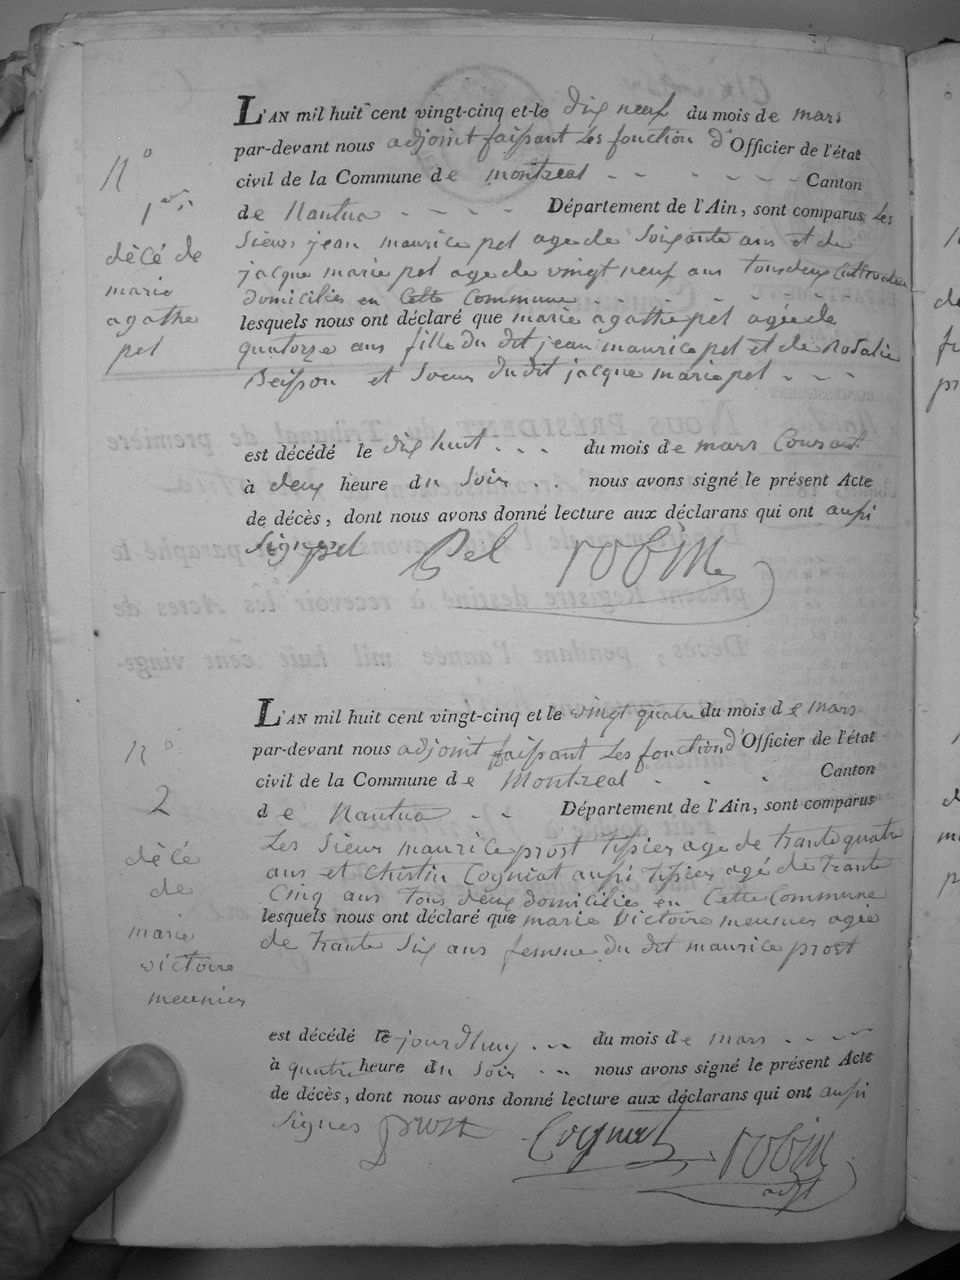 N°
1er
décé de
marie
agathe
pel
L'AN mil huit cent vingt-cinq et-le dix neuf du mois de mars
par-devant nous adjoint faissant Les fonction d'Officier de l'état
civil de la Commune de montreal - - - - - - Canton
de Nantua - - - - Département de l'Ain, sont comparus Les
Sieurs jean maurice pel age de Soixante ans et de
jacque marie pel age de vingt neuf ans tous deux Cultivateur
domiciliés en Cette Commune - - - - - -
lesquels nous ont déclaré que marie agathe pel agée de
quatorze ans fille du dit jean maurice pel et de Rosalie
Beisson et Soeur du dit jacque marie pel - - -
est décédé le dix huit - - - du mois de mars Courant
à deux heure du Soir - - - nous avons signé le présent Acte
de décès, dont nous avons donné lecture aux déclarans qui ont aussi
Signes pel Pel robin
N°
2
décé
de
marie
victoire
meunier
L'AN mil huit cent vingt-cinq et le vingt quatre du mois de mars
par-devant nous adjoint faissant Les fonction d'Officier de l'état
civil de la Commune de Montreal - - - Canton
de Nantua - - Département de l'Ain, sont comparus
Les Sieurs maurice prost tissier age de trante quatre
ans et Cogniat aussi tissier agé de trante
Cinq ans tous deux domiciliés en Cette Commune
lesquels nous ont déclaré que marie Victoire meunier agée
de trante Six ans femme du dit maurice prost
est décédé le jourdhuy - - - du mois de mars - - - -
à quatre heure du Soir - - - nous avons signé le présent Acte
de décès, dont nous avons donné lecture aux déclarans qui ont aussi
Signes prost Cogniat robin
adjt